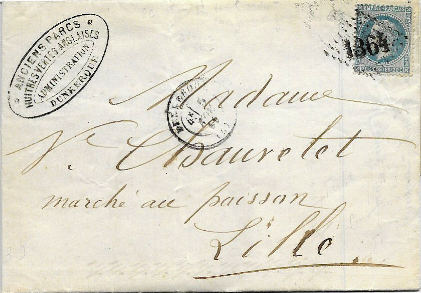 ANCIENS PARCS
HUITRES VERTES ANGLAISES
ADMINISTRATION
DUNKERQUE
1364
DUNKERQUE
Madame
Ve Chauvelet
marché au poisson
Lille